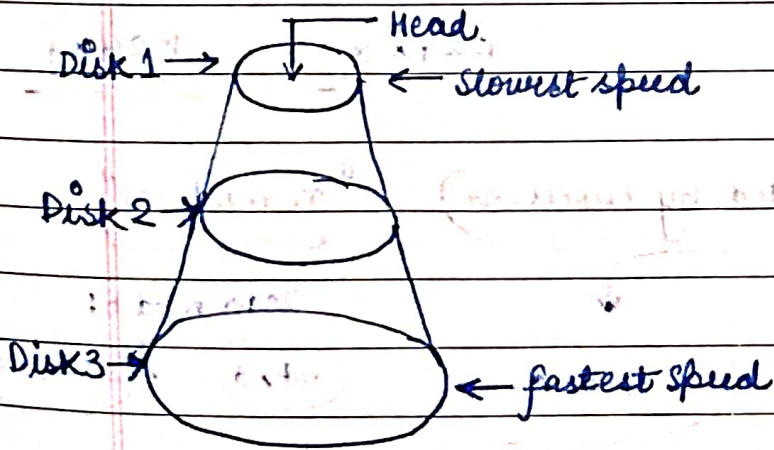 Head.
Disk 1
slowest speed
Disk 2
Disk3
fastest speed